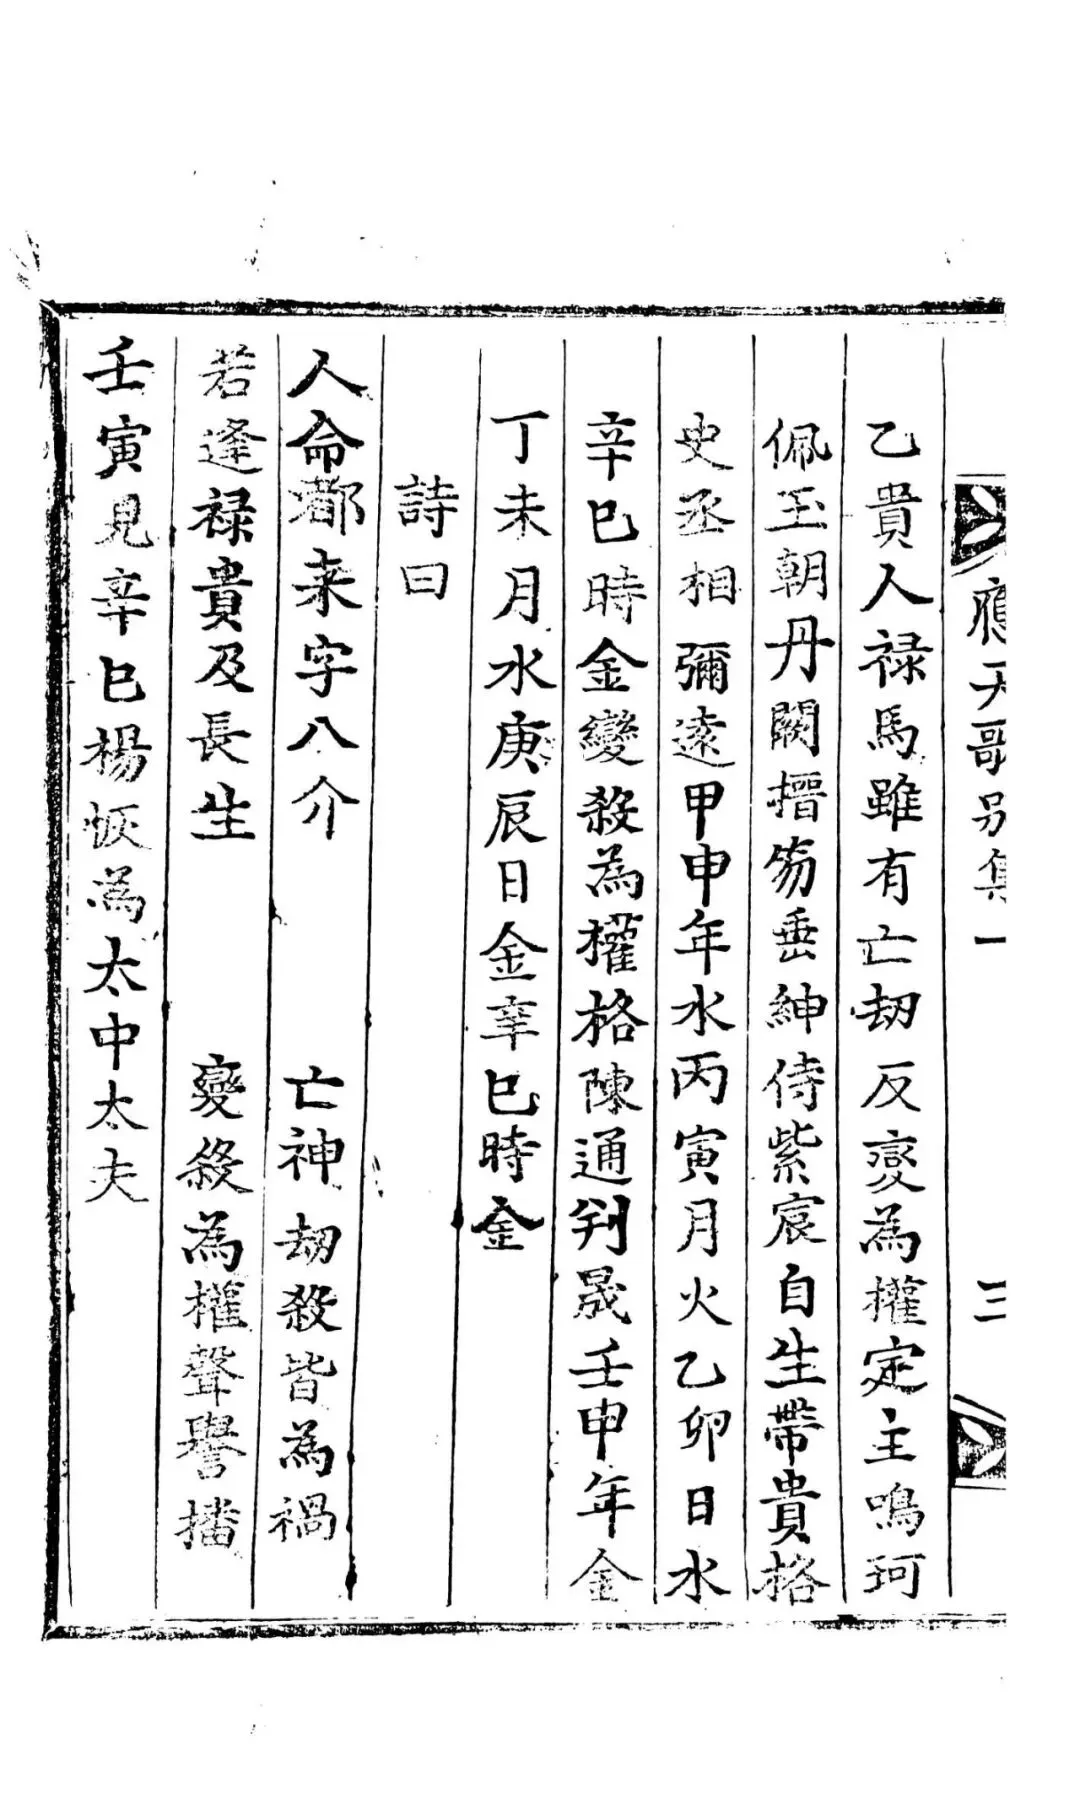 乙貴人禄馬雖有亡劫反變為權定主鳴珂
佩玉朝丹闕搢笏垂紳侍紫宸自生帶貴格
史丞相彌遠甲申年水丙寅月火乙卯日水
辛巳時金變殺為權格陳通判晟壬申年金
丁未月水庚辰日金辛巳時金
詩曰
人命都来字八介 亡神劫殺皆為禍
若逢禄貴及長生 變殺為權聲譽播
壬寅見辛巳楊恢為太中太夫
應天歌別集一 三